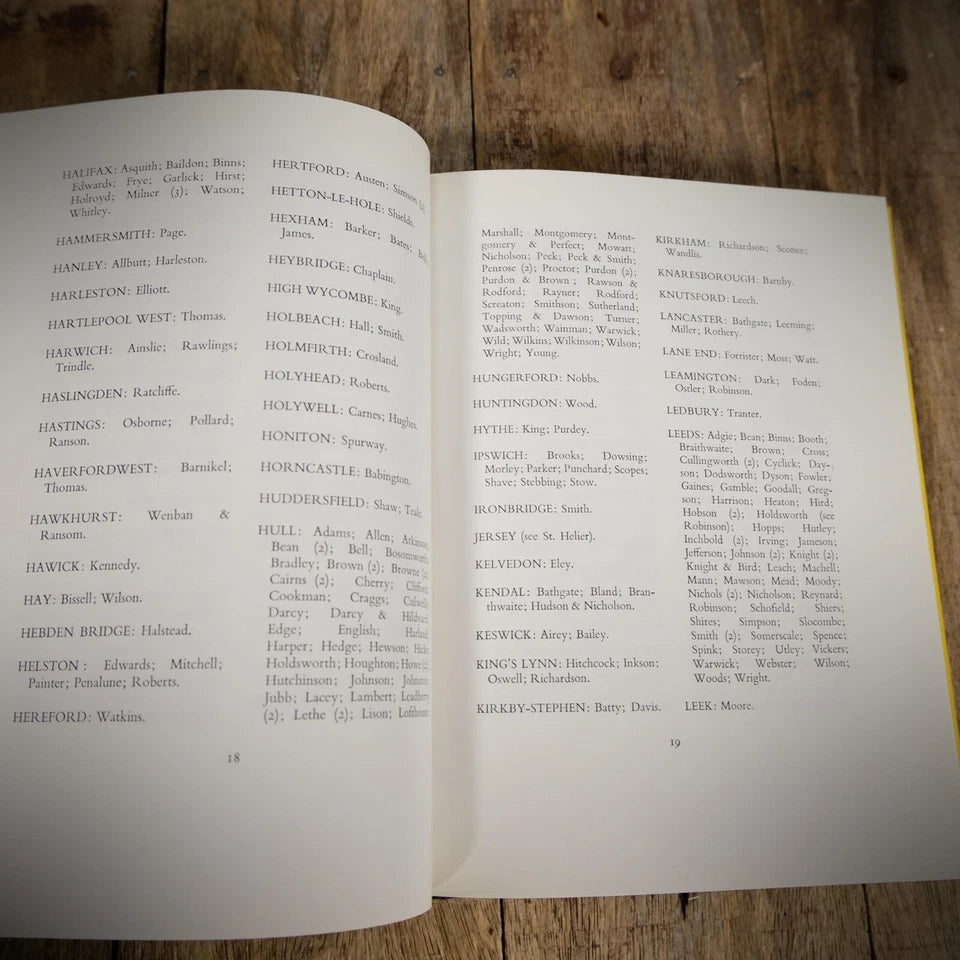 HALIFAX: Asquith; Baildon; Binns;
Edwards; Frye; Garlick; Hirst;
Holroyd; Milner (3); Watson;
Whitley.
HAMMERSMITH: Page.
HANLEY: Allbutt; Harleston.
HARLESTON: Elliott.
HARTLEPOOL WEST: Thomas.
HARWICH: Ainslie; Rawlings;
Trindle.
HASLINGDEN: Ratcliffe.
HASTINGS: Osborne; Pollard;
Ranson.
HAVERFORDWEST: Barnikel;
Thomas.
HAWKHURST: Wenban &
Ransom.
HAWICK: Kennedy.
HAY: Bissell; Wilson.
HEBDEN BRIDGE: Halstead.
HELSTON: Edwards; Mitchell;
Painter; Penalune; Roberts.
HEREFORD: Watkins.
HERTFORD: Austen; Simson (2).
HETTON-LE-HOLE: Shields.
HEXHAM: Barker; Bates;
James.
HEYBRIDGE: Chaplain.
HIGH WYCOMBE: King.
HOLBEACH: Hall; Smith.
HOLMFIRTH: Crosland.
HOLYHEAD: Roberts.
HOLYWELL: Carnes; Hughes.
HONITON: Spurway.
HORNCASTLE: Babington.
HUDDERSFIELD: Shaw; Teale.
HULL: Adams; Allen; Atkinson;
Bean (2); Bell; Bosomworth;
Bradley; Brown (2); Browne (2);
Cairns (2); Cherry; Clifford;
Cookman; Craggs;
Darcy; Darcy & Hildyard;
Edge; English; Harland;
Harper; Hedge; Hewson;
Holdsworth; Houghton; Howe (2);
Hutchinson; Johnson; Johnston;
Jubb; Lacey; Lambert; Leadberry
(2); Lethe (2); Lison; Lofthouse;
18
Marshall; Montgomery; Mont-
gomery & Perfect; Mowatt;
Nicholson; Peck; Peck & Smith;
Penrose (2); Proctor; Purdon (2);
Purdon & Brown; Rawson &
Rodford; Rayner; Rodford;
Screaton; Smithson; Sutherland;
Topping & Dawson; Turner;
Wadsworth; Wainman; Warwick;
Wild; Wilkins; Wilkinson; Wilson;
Wright; Young.
HUNGERFORD: Nobbs.
HUNTINGDON: Wood.
HYTHE: King; Purdey.
IPSWICH: Brooks; Dowsing;
Morley; Parker; Punchard; Scopes;
Shave; Stebbing; Stow.
IRONBRIDGE: Smith.
JERSEY (see St. Helier).
KELVEDON: Eley.
KENDAL: Bathgate; Bland; Bran-
thwaite; Hudson & Nicholson.
KESWICK: Airey; Bailey.
KING'S LYNN: Hitchcock; Inkson;
Oswell; Richardson.
KIRKBY-STEPHEN: Batty; Davis.
KIRKHAM: Richardson; Sconce;
Wandlis.
KNARESBOROUGH: Barnby.
KNUTSFORD: Leech.
LANCASTER: Bathgate; Leeming;
Miller; Rothery.
LANE END: Forrister; Moss; Watt.
LEAMINGTON: Dark; Foden;
Ostler; Robinson.
LEDBURY: Tranter.
LEEDS: Adgie; Bean; Binns; Booth;
Braithwaite; Brown; Cross;
Cullingworth (2); Cyclick; Day-
son; Dodsworth; Dyson; Fowler;
Gaines; Gamble; Goodall; Greg-
son; Harrison; Heaton; Hird;
Hobson (2); Holdsworth (see
Robinson); Hopps; Hutley;
Inchbold (2); Irving; Jameson;
Jefferson; Johnson (2); Knight (2);
Knight & Bird; Leach; Machell;
Mann; Mawson; Mead; Moody;
Nichols (2); Nicholson; Reynard;
Robinson; Schofield; Shiers;
Shires; Simpson; Slocombe;
Smith (2); Somerscale; Spence;
Spink; Storey; Utley; Vickers;
Warwick; Webster; Wilson;
Woods; Wright.
LEEK: Moore.
19